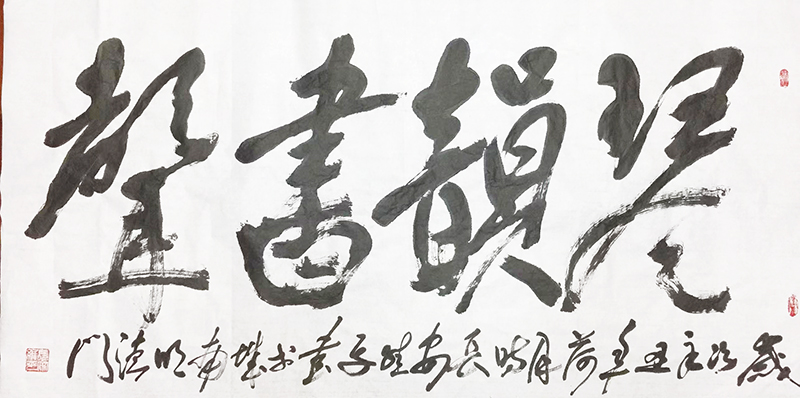 琴韻書聲
歲次辛丑年荷月時長安子書於城南明德門